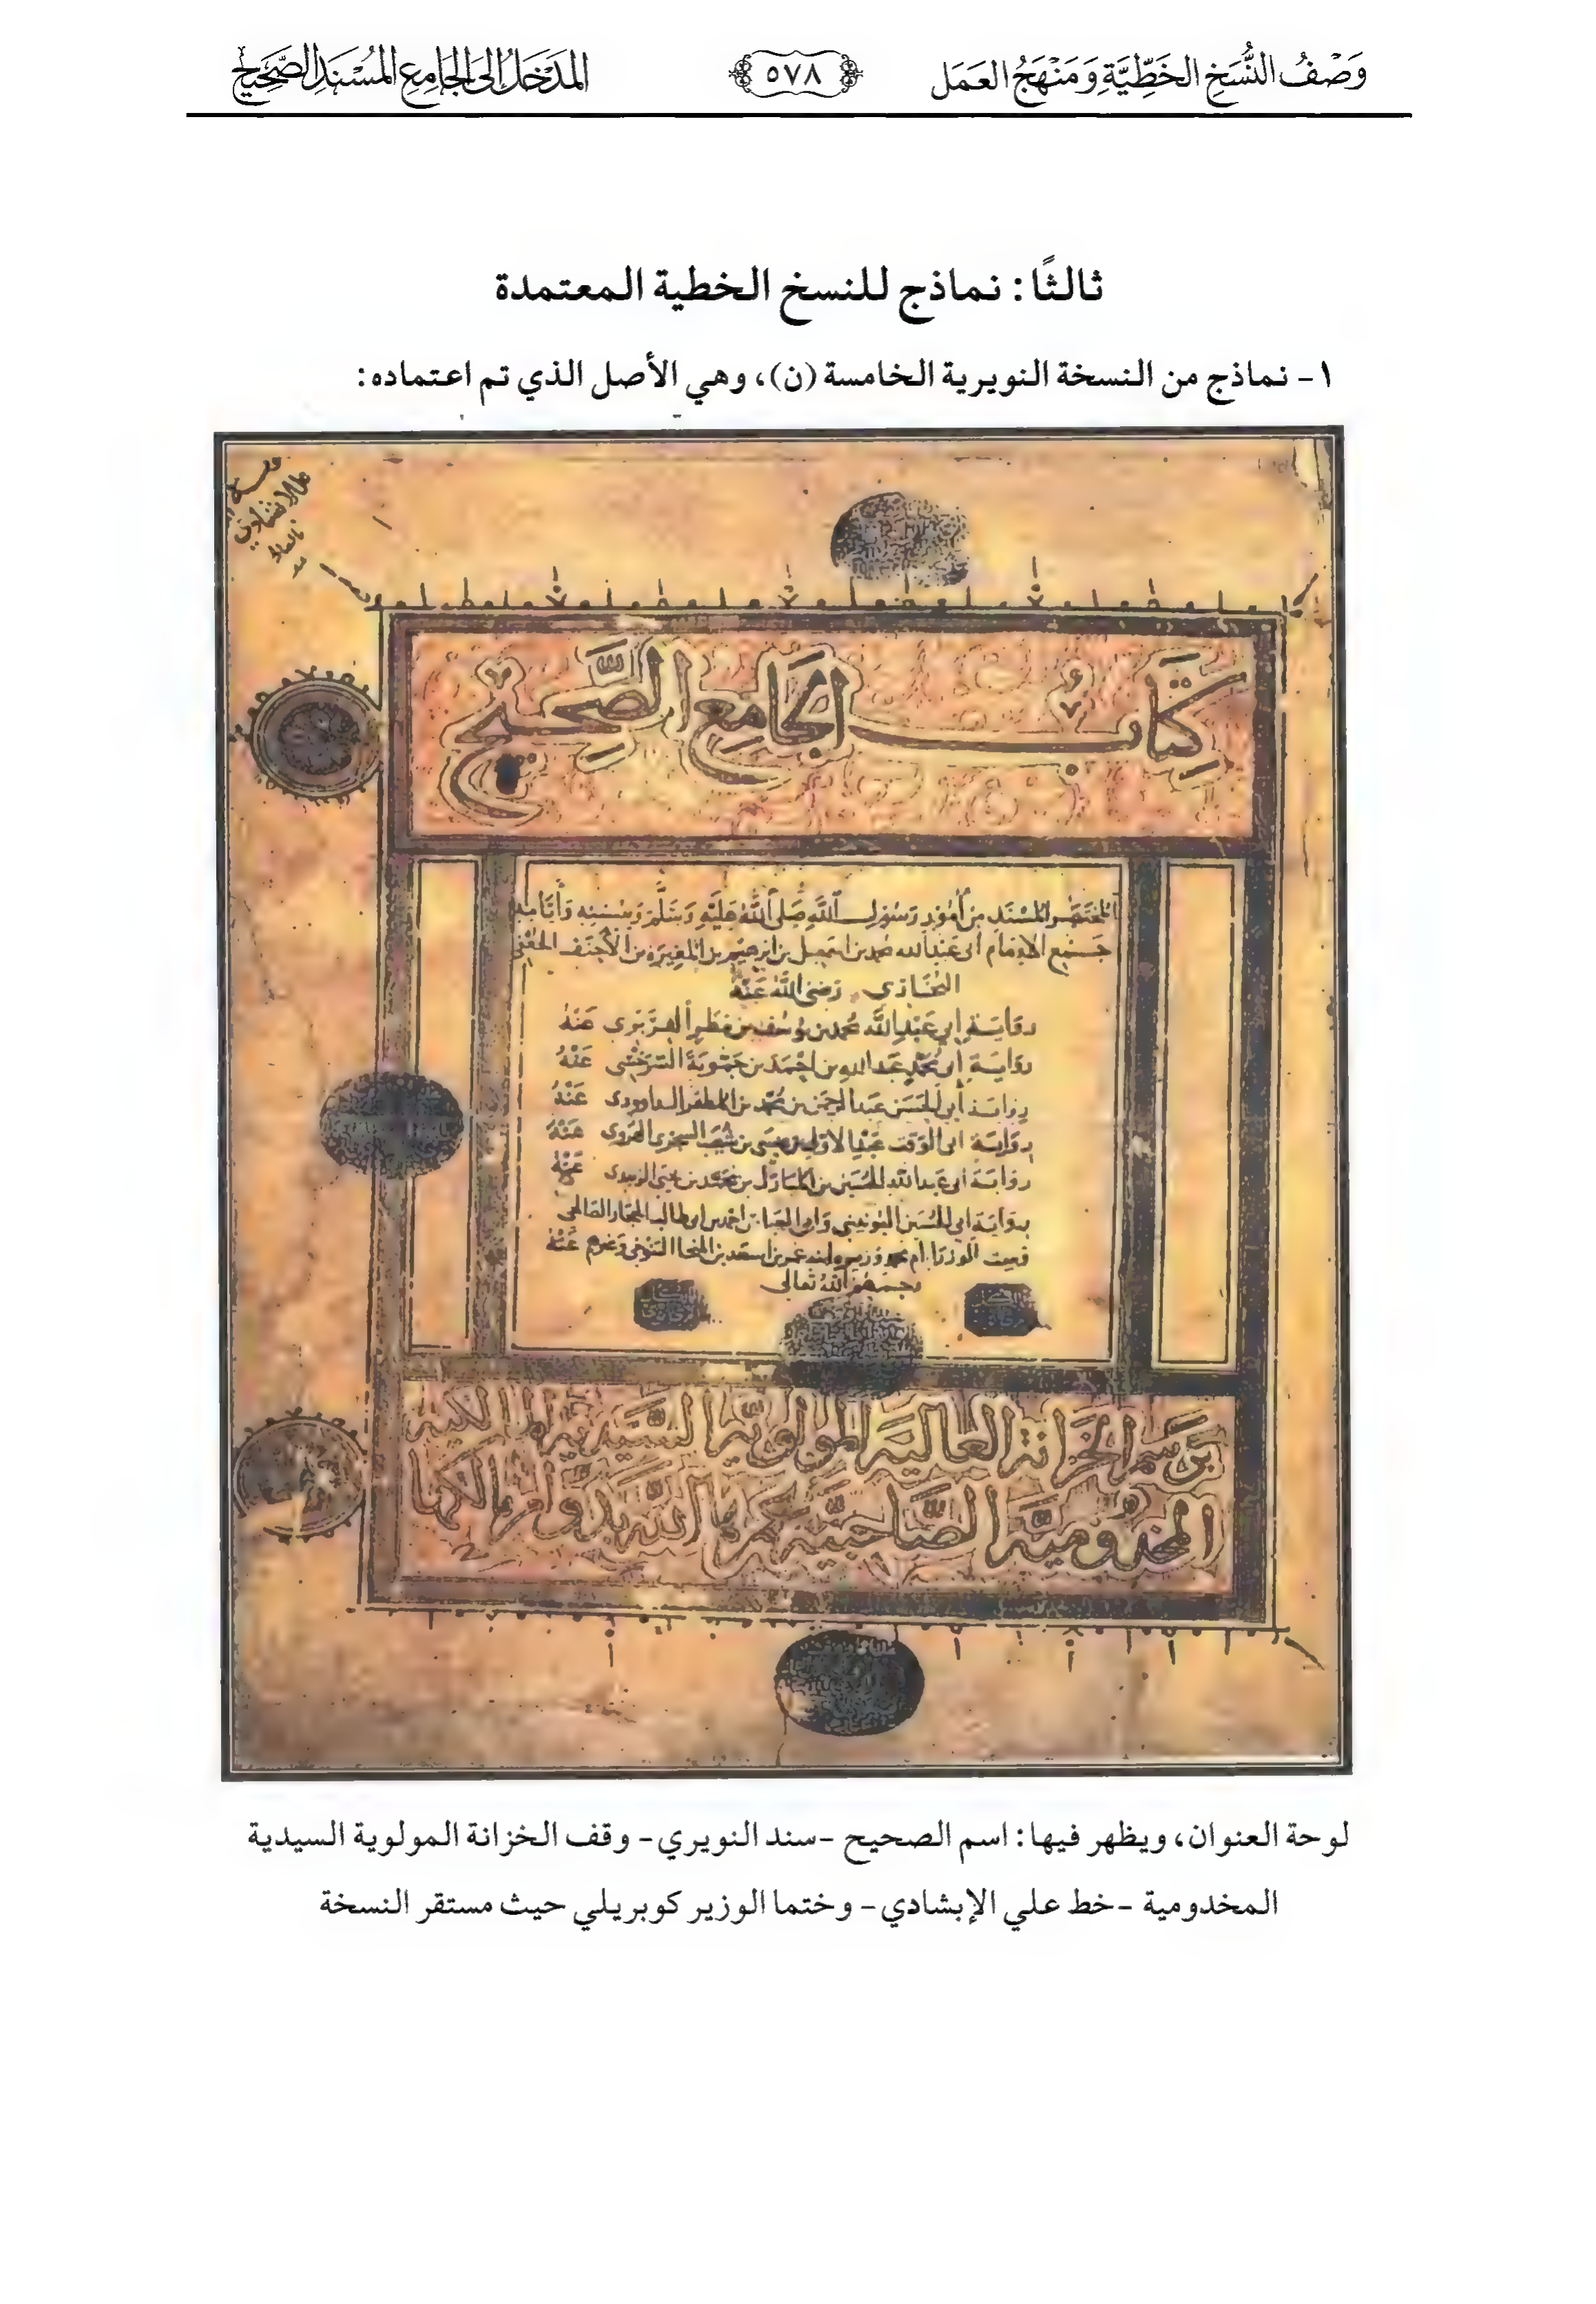 وَصْفُ النُّسَخِ الخَطِّيَّةِ وَمَنْهَجُ العَمَل
٥٧٨
المَدْخَلُ إلى الجَامِعِ المُسْنَدِ الصَّحِيحِ
ثالثًا: نماذج للنسخ الخطية المعتمدة
١- نماذج من النسخة النويرية الخامسة (ن)، وهي الأصل الذي تم اعتماده:
كِتَابُ الجَامِعِ الصَّحِيحِ
المختصر المسند من أمور رسول الله صلى الله عليه وسلم وسننه وأيامه
جمع الإمام أبي عبد الله محمد بن اسمعيل بن ابرهيم بن المغيرة بن الأحنف الجعفي
البخاري رضي الله عنه
رواية أبي عبد الله محمد بن يوسف بن مطر الفربري عنه
رواية أبي محمد عبد الله بن احمد بن حمويه السرخسي عنه
رواية أبي الحسن عبد الرحمن بن محمد بن المظفر الداوودي عنه
رواية ابي الوقت عبد الاول بن عيسى بن شعيب السجزي الهروي عنه
رواية ابي عبد الله الحسين بن المبارك بن محمد بن يحيى الزبيدي عنه
رواية ابي الحسين اليونيني وابي العباس احمد بن ابي طالب الحجار الصالحي
وست الوزرا ام محمد وزيره ابنه عمر بن اسعد بن المنجا التنوخي وغيرهم عنه
رحمهم الله تعالى
برسم الخزانة العالية المولوية السيدية المالكية
المخدومية الصاحبية عمرها الله بدوام مالكها
لوحة العنوان، ويظهر فيها: اسم الصحيح -سند النويري- وقف الخزانة المولوية السيدية
المخدومية -خط علي الإبشادي- وختما الوزير كوبريلي حيث مستقر النسخة